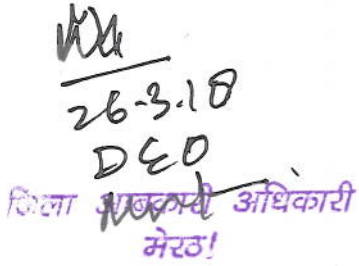 26-3.18
DEO
जिला आबकारी अधिकारी
मेरठ!